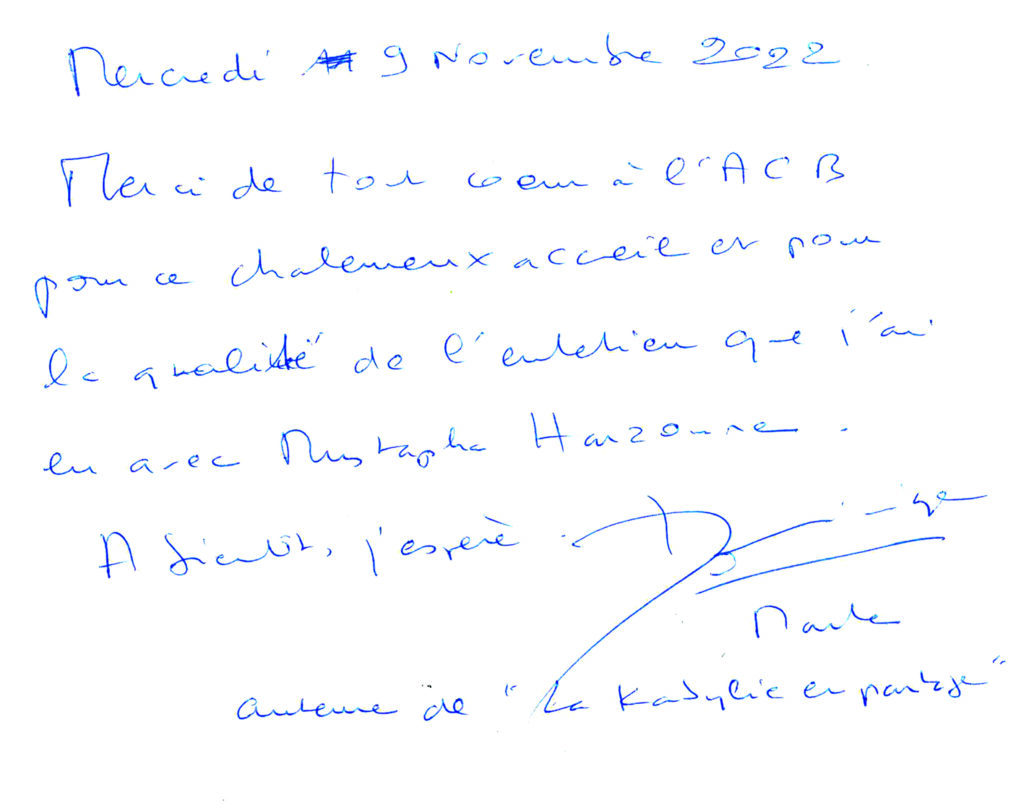 Mercredi 9 Novembre 2022
Merci de tout coeur à l'ACB
pour ce chaleureux accueil et pour
la qualité de l'entretien que j'ai
eu avec Mustapha Harzoune.
A bientôt, j'espère.
auteure de "La Kabylie en partage"